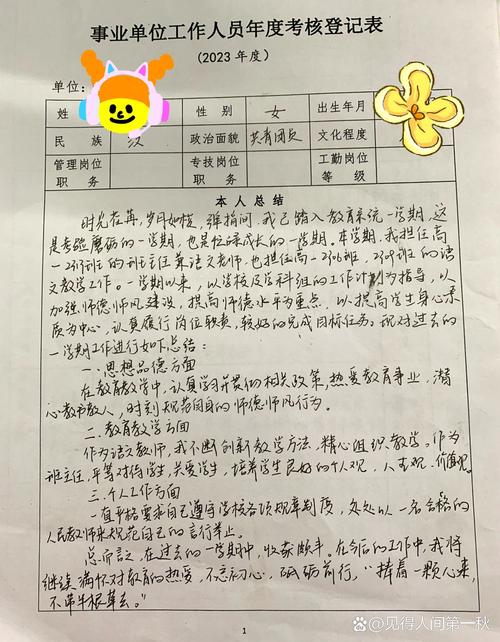 事业单位工作人员年度考核登记表
(2023 年度)
单位:
姓 性 别 女 出生年月
民 族 汉 政治面貌 共青团员 文化程度
管理岗位职务 专技岗位职务 工勤岗位等级
本人总结
时光荏苒,岁月如梭,弹指间,我已踏入教育系统一学期,这
是考验磨砺的一学期,也是忙碌成长的一学期。本学期,我担任高
一班的班主任兼语文老师,也担任高一班,2309班的语
文教学工作。一学期以来,以学校及学科组的工作计划为指导,以
加强师德师风建设,提高师德水平为重点,以提高学生身心素
质为中心,认真履行岗位职责,较好的完成目标任务。现对过去的
一学期工作进行如下总结:
一.思想品德方面
在教育教学中,认真学习并贯彻相关政策,热爱教育事业,潜
心教书育人,时刻规范自身的师德师风行为。
二.教育教学方面
作为语文教师,我不断创新教学方法,精心组织教学。作为
班主任,平等对待学生,关爱学生,培养学生良好的个人观,人生观,价值观。
三.个人工作方面
一直严格要求自己遵守学校各项规章制度,处处以一名合格的
人民教师来规范自己的言行举止。
总而言之,在过去的一学期中,收获颇丰。在今后的工作中,我将
继续满怀对教育的热爱,不忘初心,砥砺前行,“捧着一颗心来,
不带半根草去。”
1
@见得人间第一秋